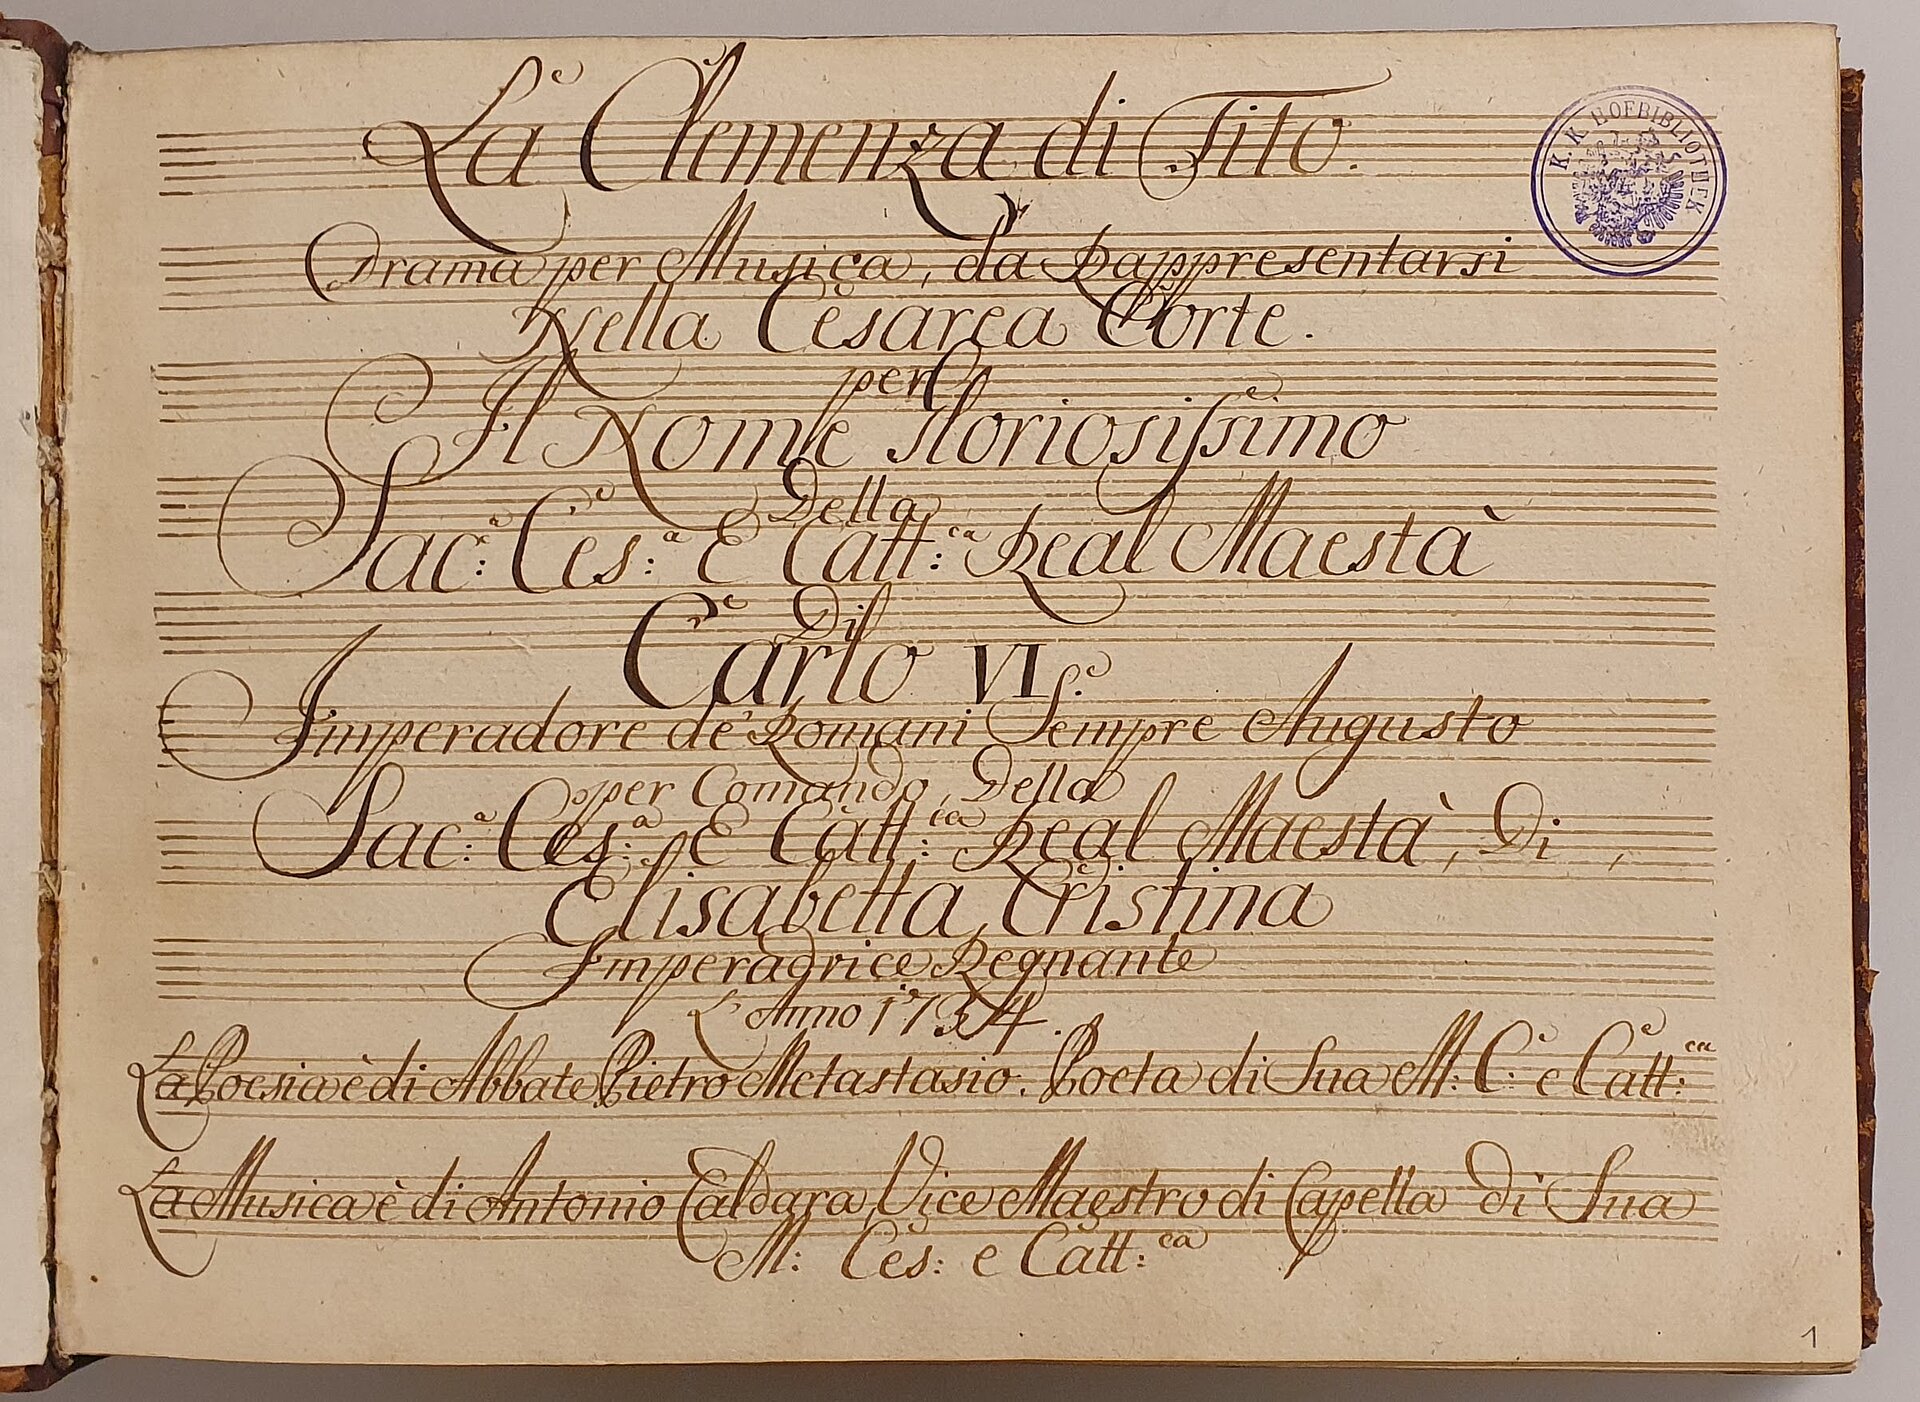 La Clemenza di Tito.
K. K. HOFBIBLIOTHEK
Drama per Musica, da Rappresentarsi
Nella Cesarea Corte.
per
Il Nome Gloriosissimo
Della
Sac:ª Ces:ª E Catt:ca Real Maestà
Di
Carlo VI.
Imperadore de' Romani Sempre Augusto
per Comando, Della
Sac:ª Ces:ª E Catt:ca Real Maestà, Di,
Elisabetta, Cristina
Imperadrice Regnante
L'Anno 1734.
La Poesia è di Abbate Pietro Metastasio. Poeta di Sua M: C: e Catt:ca
La Musica è di Antonio Caldara, Vice Maestro di Capella di Sua
M: Ces: e Catt:ca
1